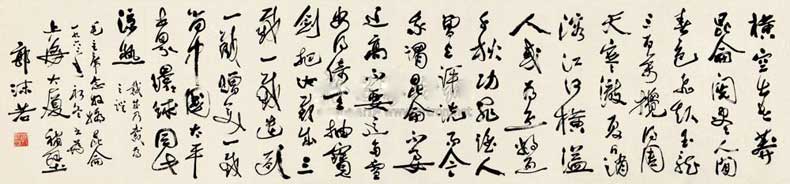 横空出世莽
昆仑阅尽人间
春色飞起玉龙
三百万搅得周
天寒彻夏日消
溶江河横溢
人或为鱼鳖
千秋功罪谁人
曾与评说而今
我谓昆仑不要
这高不要这多雪
安得倚天抽宝
剑把汝裁出三
截一截遗欧
一截赠美一截
留中国太平
世界环球同此
凉热
裁出乃裁为
之误
毛主席念奴娇昆仑
一九六三年初冬书为
上海大厦补壁
郭沫若